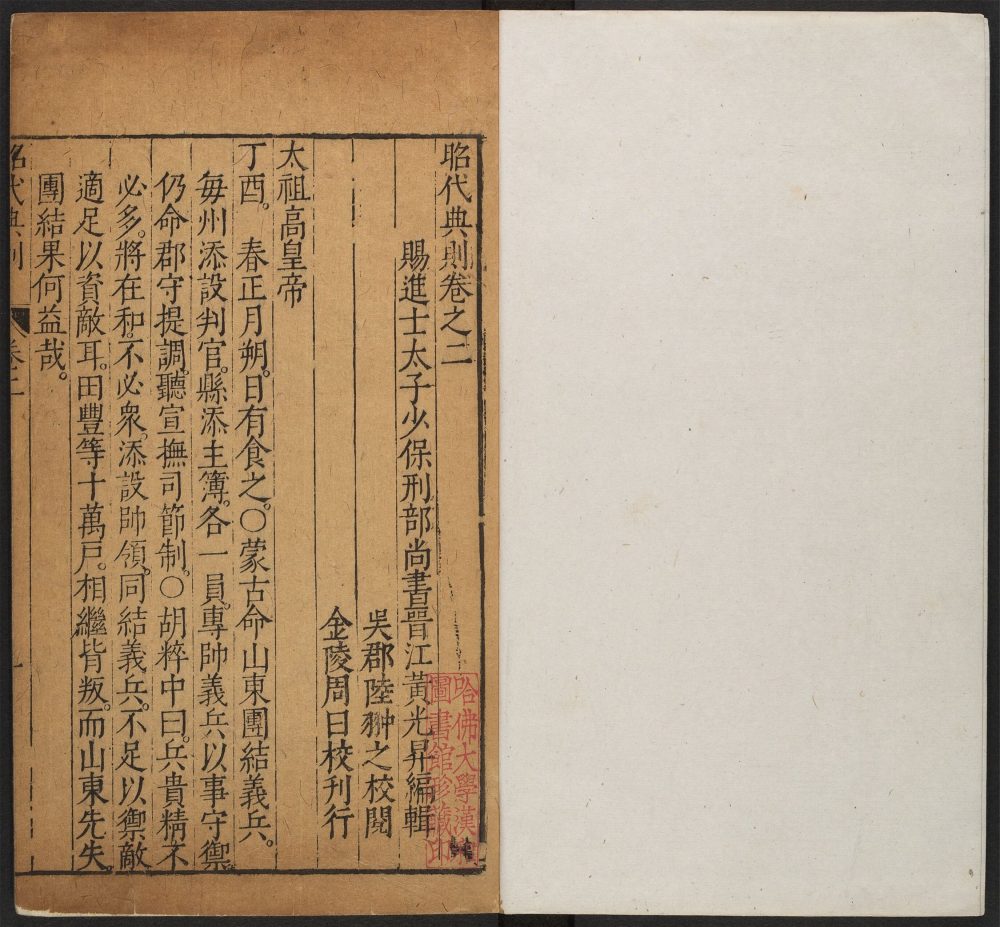 昭代典則卷之二
賜進士太子少保刑部尚書晉江黃光昇編輯
吳郡陸翀之校閱
金陵周曰校刊行
太祖高皇帝
丁酉。春正月朔。日有食之。〇蒙古命山東團結義兵。
每州添設判官。縣添主簿。各一員。專帥義兵以事守禦。
仍命郡守提調。聽宣撫司節制。〇胡粹中曰。兵貴精不
必多。將在和。不必衆。添設帥領。同結義兵。不足以禦敵
適足以資敵耳。田豐等十萬戶。相繼皆叛。而山東先失。
團結果何益哉。
昭代典則 卷二 一
哈佛大學漢和
圖書館珍藏印